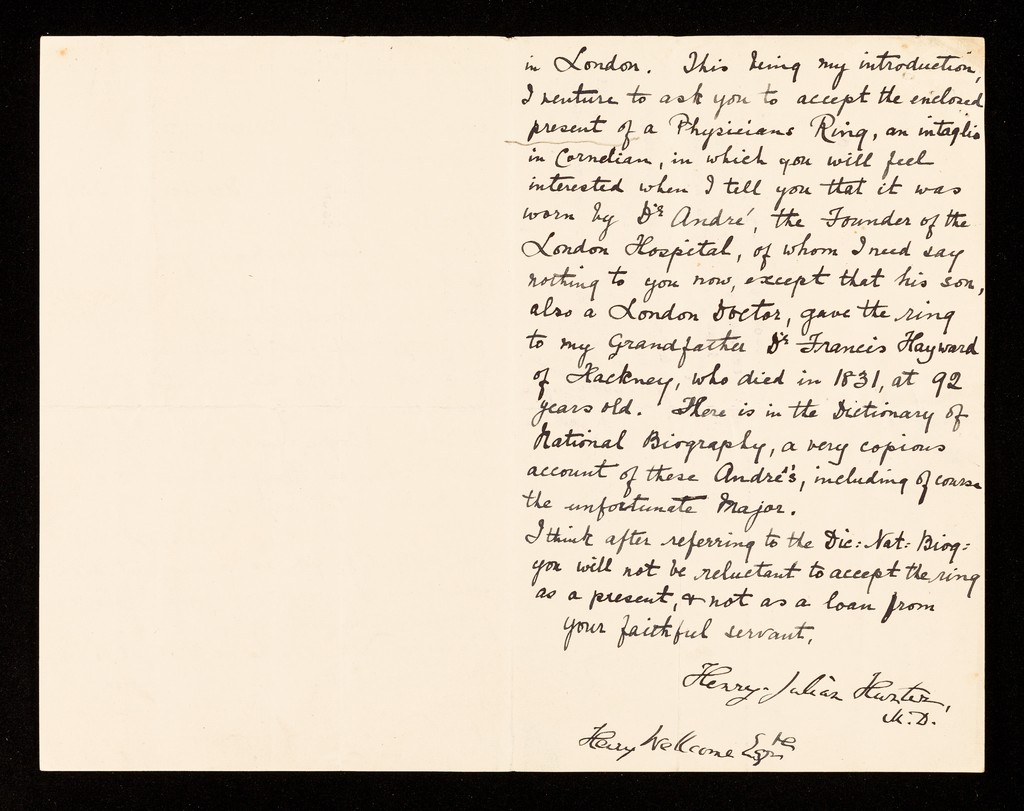 in London. This being my introduction,
I venture to ask you to accept the enclosed
present of a Physicians Ring, an intaglio
in Cornelian, in which you will feel
interested when I tell you that it was
worn by Dr André, the Founder of the
London Hospital, of whom I need say
nothing to you now, except that his son,
also a London Doctor, gave the ring
to my Grandfather Dr Francis Hayward
of Hackney, who died in 1831, at 92
years old. There is in the Dictionary of
National Biography, a very copious
account of these André's, including of course
the unfortunate Major.
I think after referring to the Dic: Nat: Biog:
you will not be reluctant to accept the ring
as a present, & not as a loan from
your faithful servant,
Henry Julian Hunter,
M.D.
Henry Wellcome